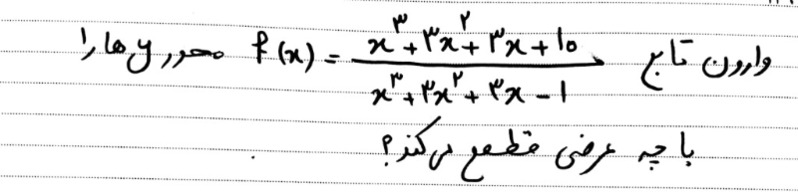 وارون تابع f(x) = (x^۳ + ۳x^۲ + ۳x + ۱۰) / (x^۳ + ۳x^۲ + ۳x - ۱) محور y ها را
با چه عرضی قطع می‌کند؟